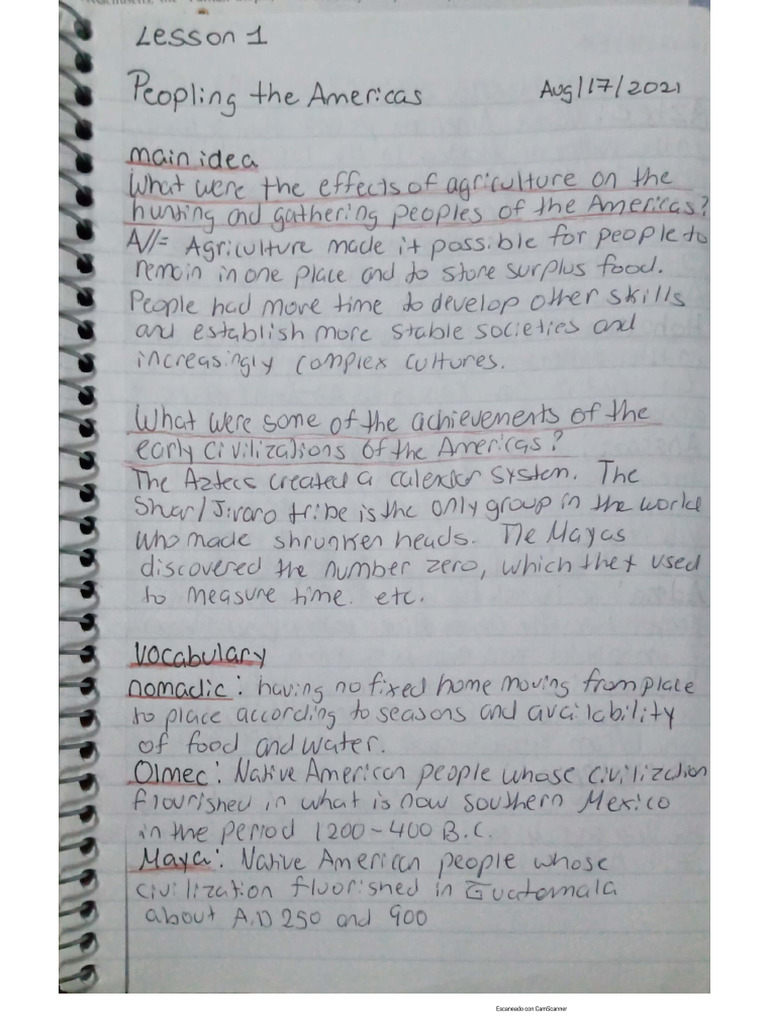 Lesson 1
Peopling the Americas Aug/17/2021
main idea
What were the effects of agriculture on the
hunting and gathering peoples of the Americas?
A//= Agriculture made it possible for people to
remain in one place and to store surplus food.
People had more time to develop other skills
and establish more stable societies and
increasingly complex cultures.
What were some of the achievements of the
early civilizations of the Americas?
The Aztecs created a calendar system. The
Shuar/Jivaro tribe is the only group in the world
who made shrunken heads. The Mayas
discovered the number zero, which they used
to measure time. etc.
Vocabulary
nomadic: having no fixed home moving from place
to place according to seasons and availability
of food and water.
Olmec: Native American people whose civilization
flourished in what is now southern Mexico
in the period 1200-400 B.C.
Maya: Native American people whose
civilization fluorished in Guatemala
about A.D 250 and 900
Escaneado con CamScanner